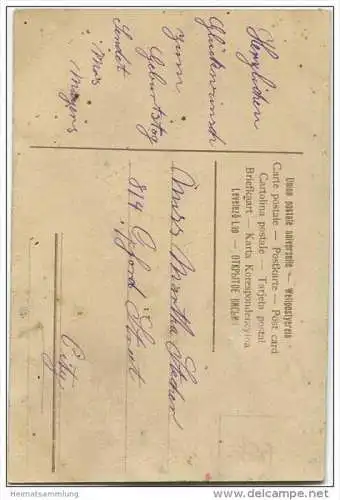 Herzlichen
Glückwunsch
zum
Geburtstag
Sendet
Mrs
Mayers
Union postale universelle — Weltpostverein
Carte postale — Postkarte — Post card
Cartolina postale — Tarjeta postal
Briefkaart — Karta Korespondencyjna
Levelező-Lap — ОТКРЫТОЕ ПИСЬМО
Miss Martha
819 Oxford Street
City
Heimatsammlung
www.ansichtskarten-center.de